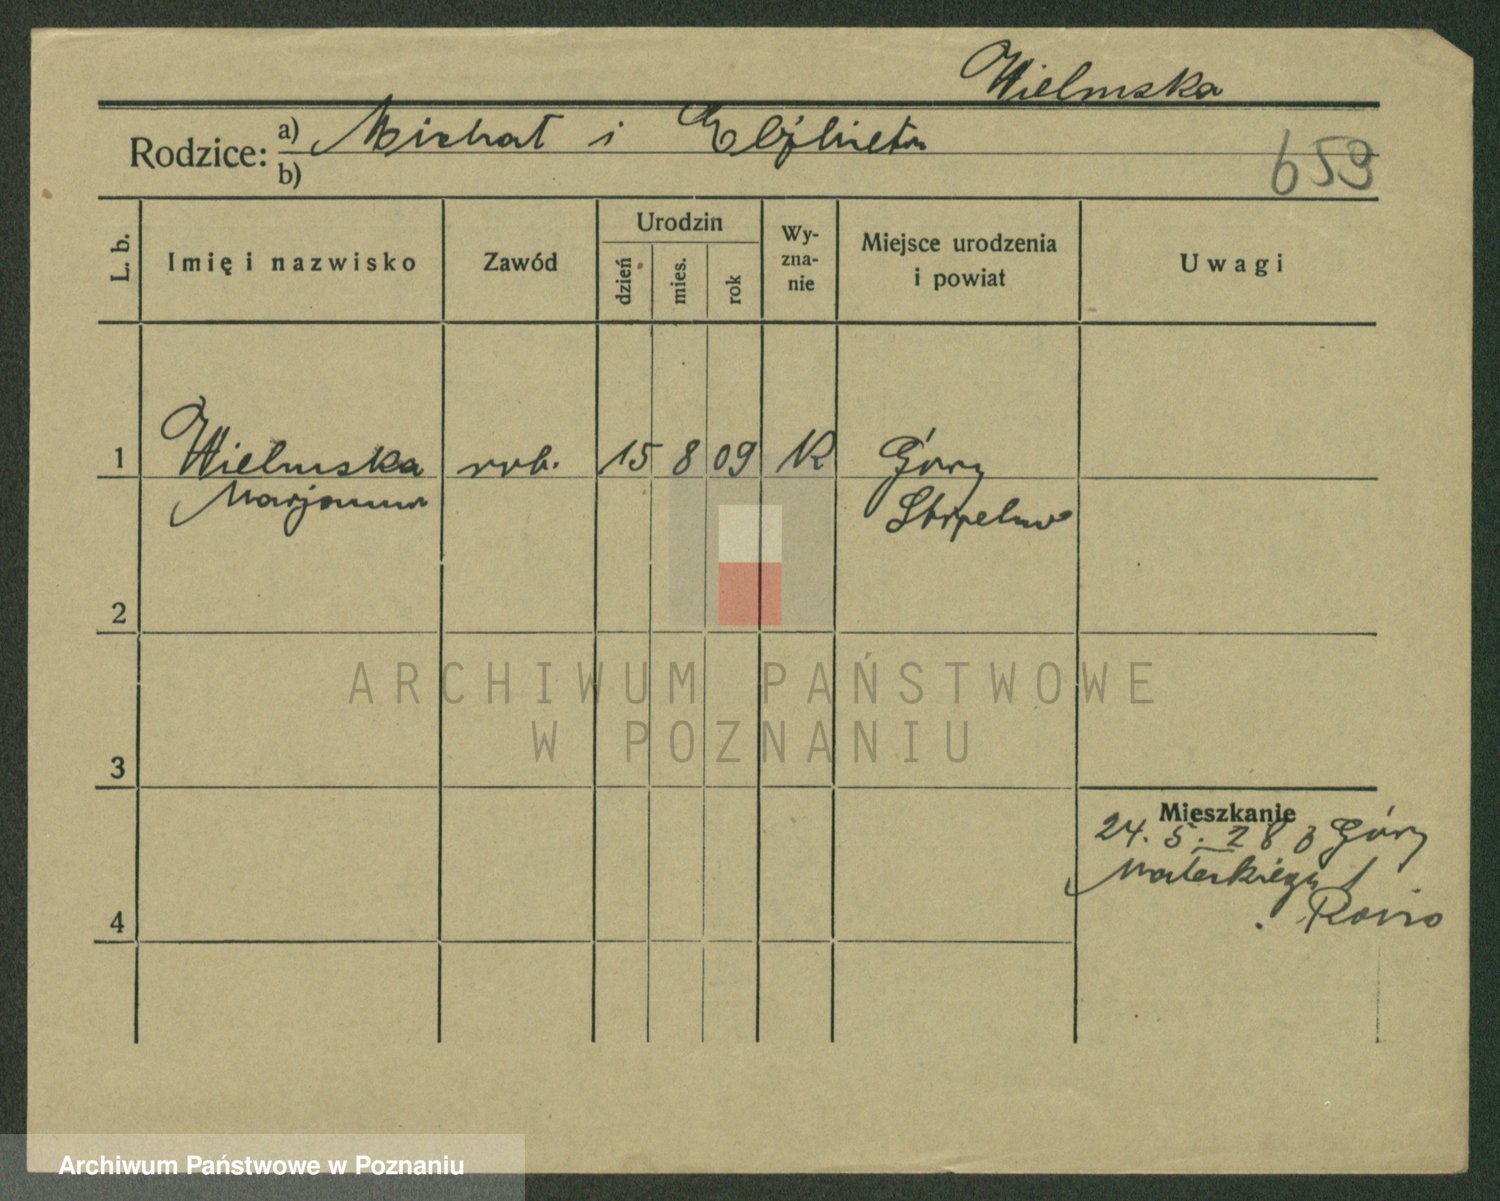 Wielmska
Rodzice: a) Michał i Elżbieta
b)
653
L. b.
Imię i nazwisko
Zawód
Urodzin
dzień
mies.
rok
Wy-
zna-
nie
Miejsce urodzenia
i powiat
Uwagi
1 Wielmska rob. 15 8 09 K Góry
Marjanna
2
3
4
Mieszkanie
24. 5. 28 z Góry
ARCHIWUM PAŃSTWOWE
W POZNANIU
Archiwum Państwowe w Poznaniu